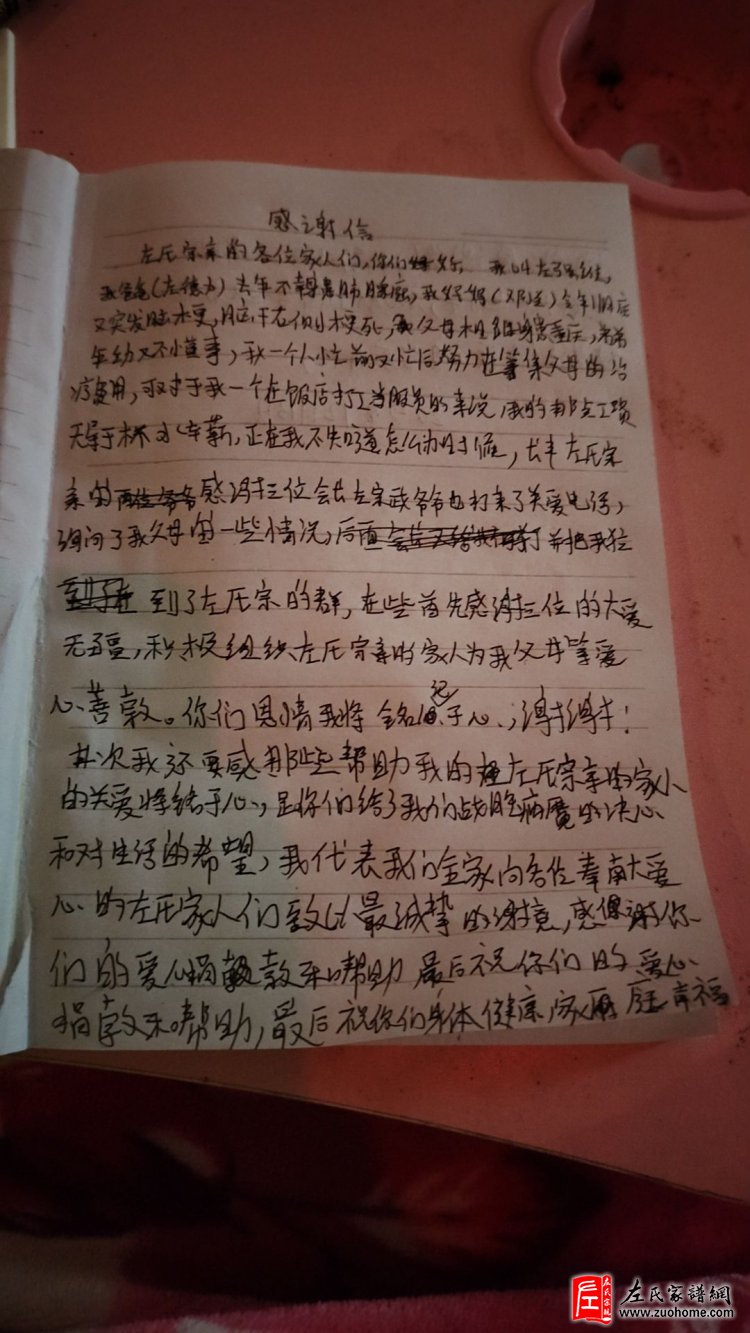 感谢信
左氏宗亲的各位家人们,你们好 我叫左强维,
我爸爸(左德)去年不幸患肺腺癌,我妈妈(邓)今年1月底
又突发脑梗,脑干右侧梗死,我父母相继身患重庆,弟弟
年幼又不懂事,我一个人忙前又忙后努力在筹集父母的治
疗费用,取对于我一个在饭店打工当服员的来说,我的那点工资
无异于杯水车薪,正在我不失道怎么办时候,左氏宗
亲的感谢三位会长左宗政爷爷也打来了关爱电话,
询问了我父母的一些情况,后面并把我拉
到了左氏宗的群,在些首先感谢三位的大爱
无疆,积极组织左氏宗亲的家人为我父母筹爱
心善款。你们恩情我将铭记于心,谢谢!
其次我还要感那些帮助我的左氏宗亲的家人
的关爱将铭于心,是你们给了我们战胜病魔的决心
和对生活的希望,我代表我们全家向各位奉献大爱
心的左氏家人们致以最诚挚的谢意,感谢你
们的爱心捐款和帮助 最后祝你们的爱心
捐款和帮助,最后祝你们身体健康,家庭幸福
左氏家譜網
www.zuohome.com